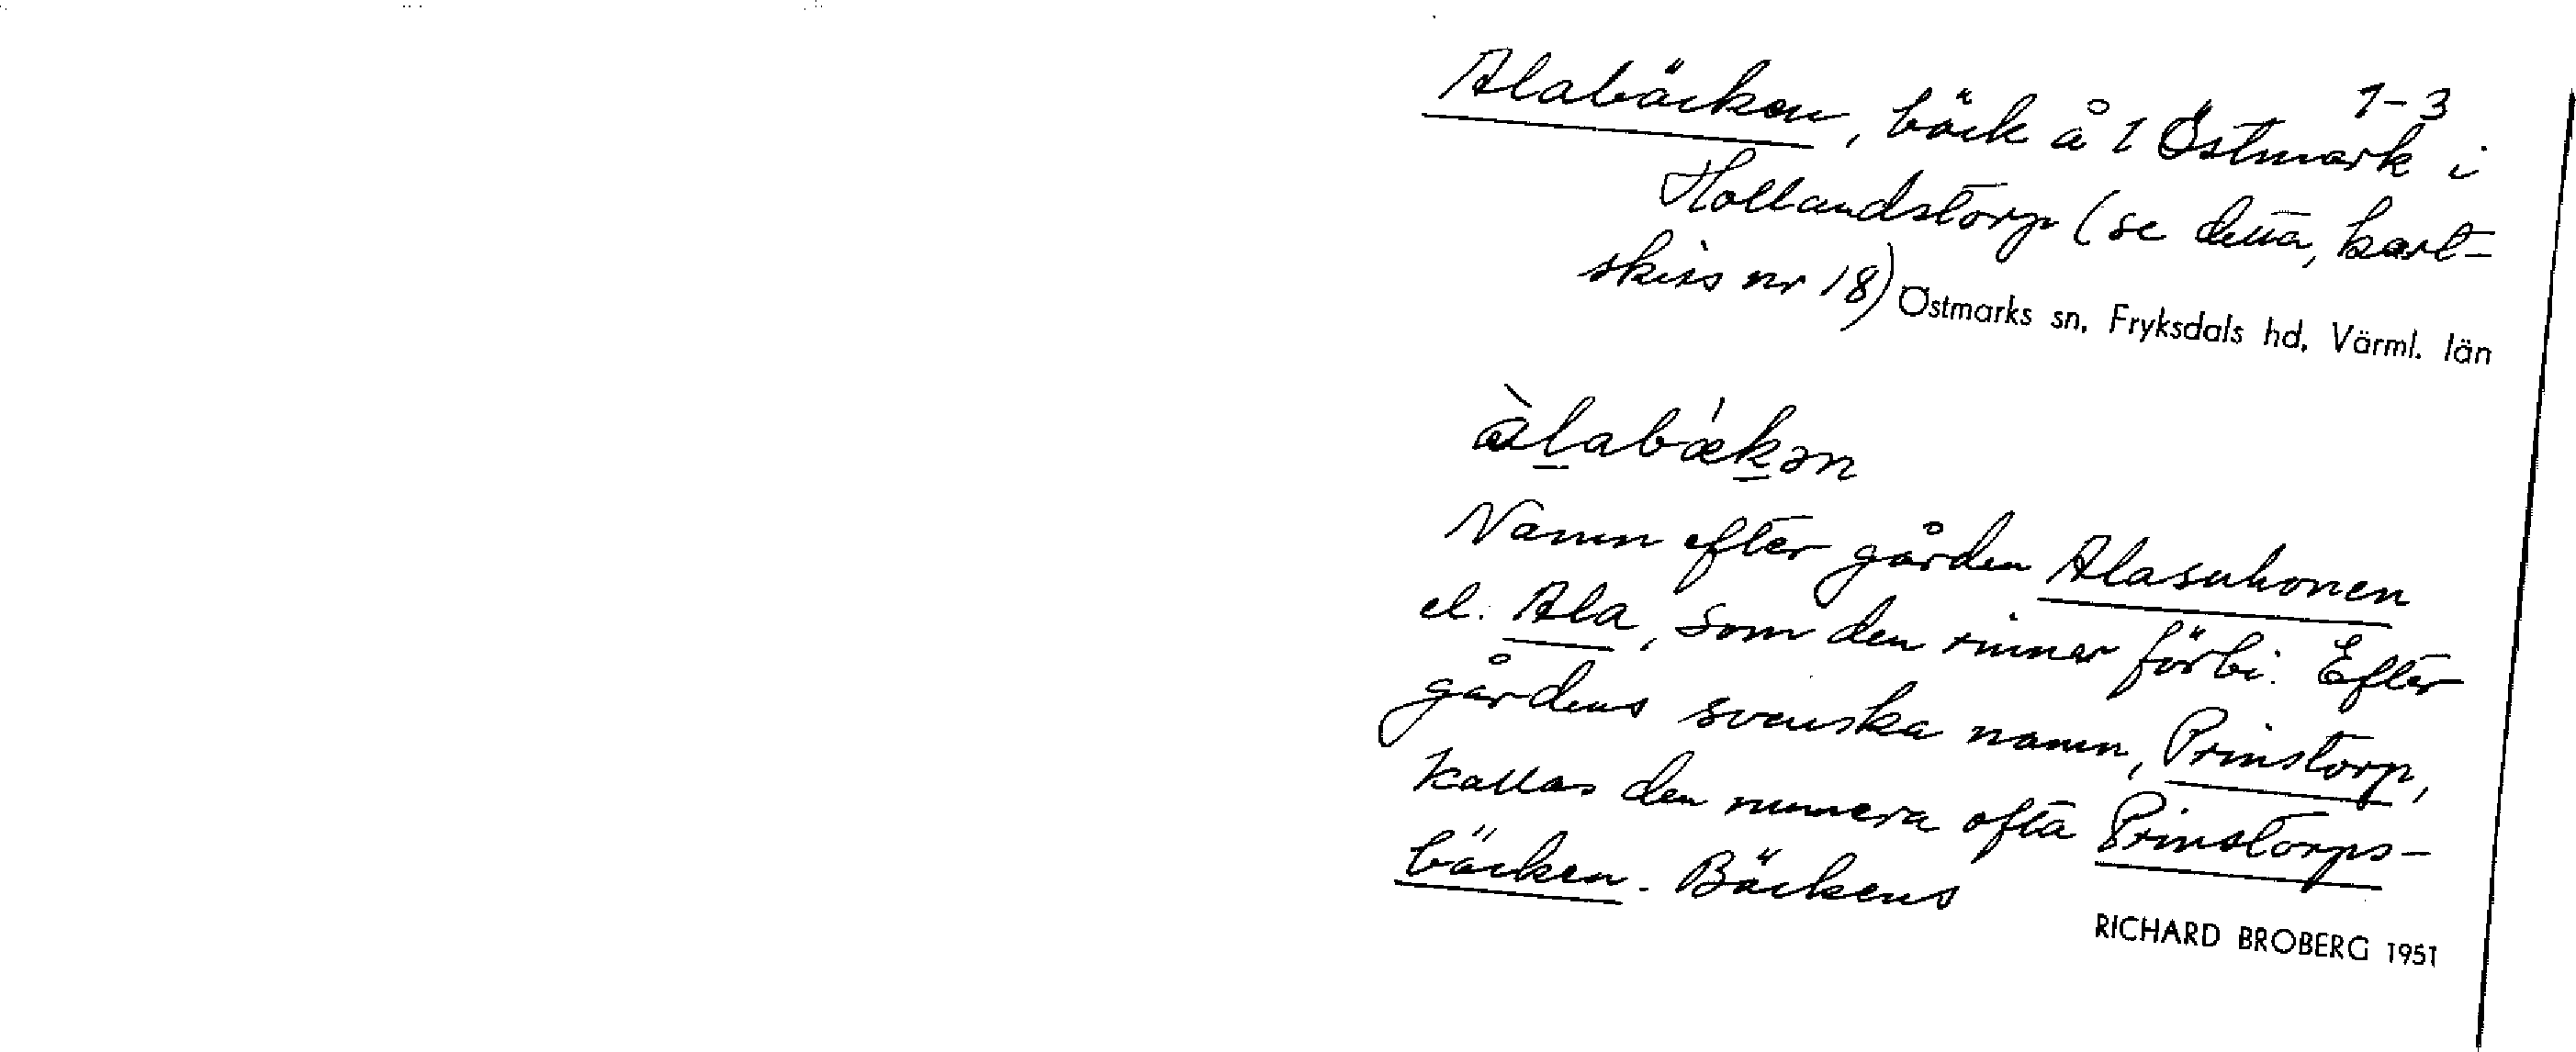 1-3
Alabäcken, bäck å 1 Östmark i
Hollandstorp (se detta, kart-
skiss nr 18) Östmarks sn, Fryksdals hd, Värml. län
àlabǽkən
Namn efter gården Alasuhonen
el. Ala, som den rinner förbi. Efter
gårdens svenska namn, Prinstorp,
kallas den numera ofta Prinstorps-
bäcken. Bäckens
RICHARD BROBERG 1951